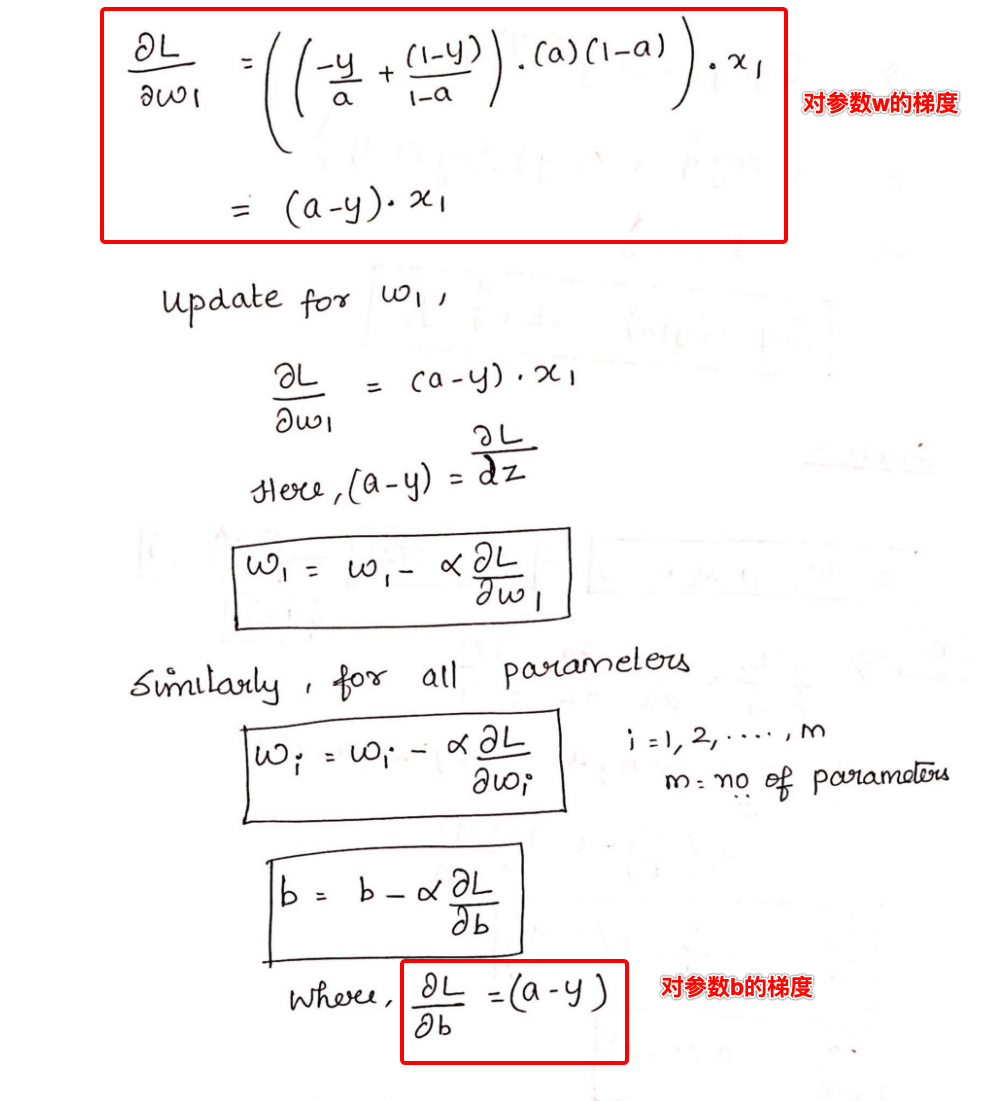 ∂L/∂w₁ = ((-y/a + (1-y)/1-a) · (a)(1-a)) · x₁
对参数w的梯度
= (a-y) · x₁
Update for w₁,
∂L/∂w₁ = (a-y) · x₁
Here, (a-y) = ∂L/dz
w₁ = w₁ - α ∂L/∂w₁
Similarly, for all parameters
wᵢ = wᵢ - α ∂L/∂wᵢ
i = 1, 2, ...., m
m = no of parameters
b = b - α ∂L/∂b
where, ∂L/∂b = (a-y)
对参数b的梯度